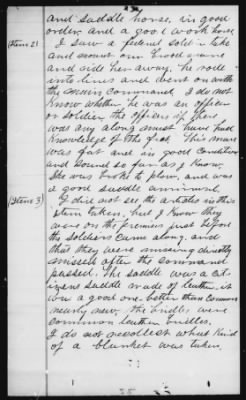 and saddle horse, in good
order, and a good work horse
(Item 2) I saw a federal soldier take
and mount our brood mare
and ride her away, he rode
into lines and went on with
the main command. I do not
know whether he was an officer
or soldier, the officers if there
was any along must have had
knowledge of the fact. This mare
was fat and in good condition
and sound so far as I know.
She was broke to plow, and was
a good saddle animal.
(Item 3) I did not see the articles in this
item taken, but I know they
were on the premises just before
the soldiers came along, and
that they were missing directly
missed after the command
passed. The saddle was a cit-
izens saddle made of leather. it
was a good one better than common
nearly new. the bridles were
common leather bridles.
I do not recollect what kind
of a blanket was taken.